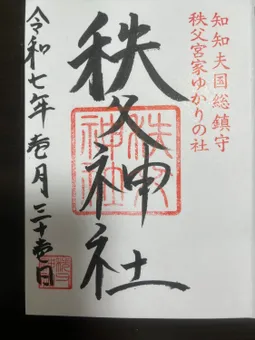 知知夫国総鎮守
秩父宮家ゆかりの社
秩父神社
秩父
神社
令和七年壱月三十壱日